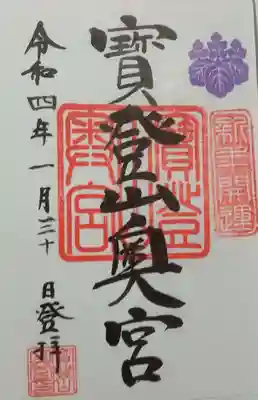 新年開運
寶登山奥宮
寶登山
奥宮
令和四年一月三十日登拝